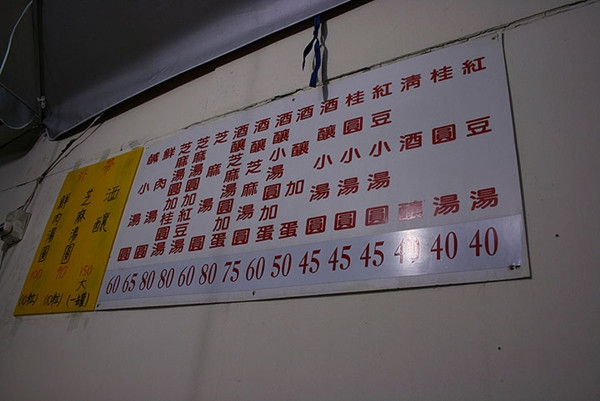 紅豆湯 40
桂圓湯 40
清酒釀 40
紅豆小湯圓 45
桂圓小湯圓 45
酒釀小湯圓 45
酒釀加蛋 50
酒釀小湯圓加蛋 60
酒釀芝麻湯圓 75
酒釀芝麻湯圓加蛋 80
芝麻湯圓 60
芝麻湯圓加紅豆湯 80
芝麻湯圓加桂圓湯 80
鮮肉湯圓 65
鹹小湯圓 60
酒釀 150 大(一罐)
芝麻湯圓 90 (10粒)
鮮肉湯圓 100 (10粒)